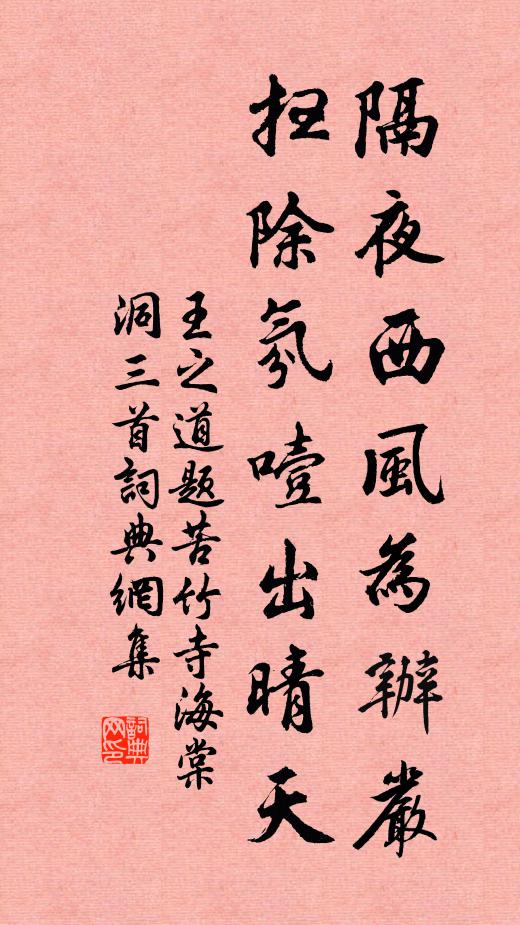 隔夜西風為辦嚴
扫除氛噎出晴天
王之道题苦竹寺海棠
洞三首詞典網集
詞典網印